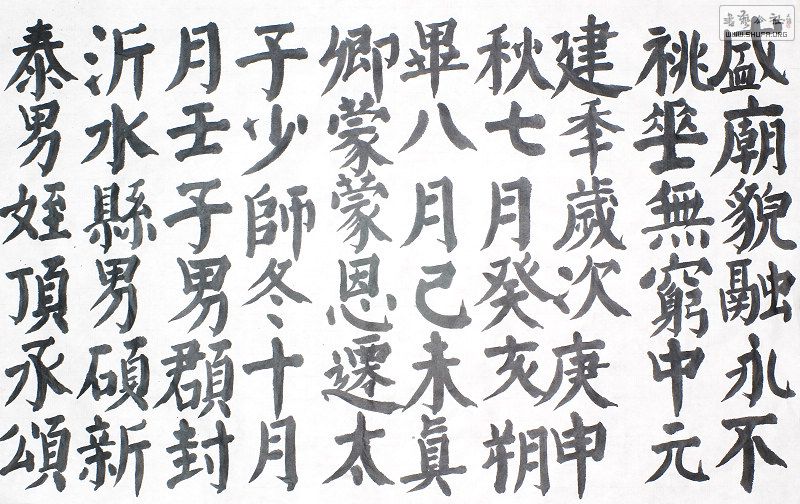 盛廟貌融永不
祧垂無窮中元
建秊歲次庚申
秋七月癸亥朔
畢八月己未眞
卿蒙蒙恩遷太
子少師冬十月
月壬子男頵封
沂水縣男碩新
泰男姪頂承頌
書藝公社
WWW.SHUFA.ORG